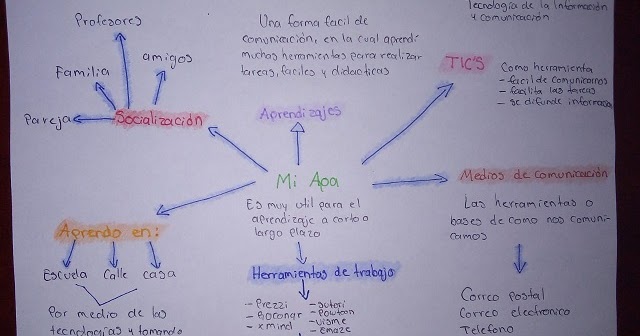 Profesores
Familia
amigos
Pareja
Socialización
Una forma facil de
comunicación, en la cual aprendí
muchas herramientas para realizar
tareas, faciles y didacticas
Aprendizajes
Tecnología de la Información
y comunicación
TIC'S
Como herramienta
- facil de comunicarnos
- facilita las tareas
- se difunde información
Mi Apa
Es muy util para el
aprendizaje a corto o
largo plazo
Medios de comunicación
Las herramientas o
bases de como nos comuni-
camos
Correo postal
Correo electronico
Telefono
Aprendo en:
Escuela Calle casa
Por medio de las
tecnologías y tomando
Herramientas de trabajo
- Prezzi
- xmind